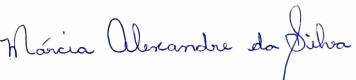 Márcia Alexandre da Silva